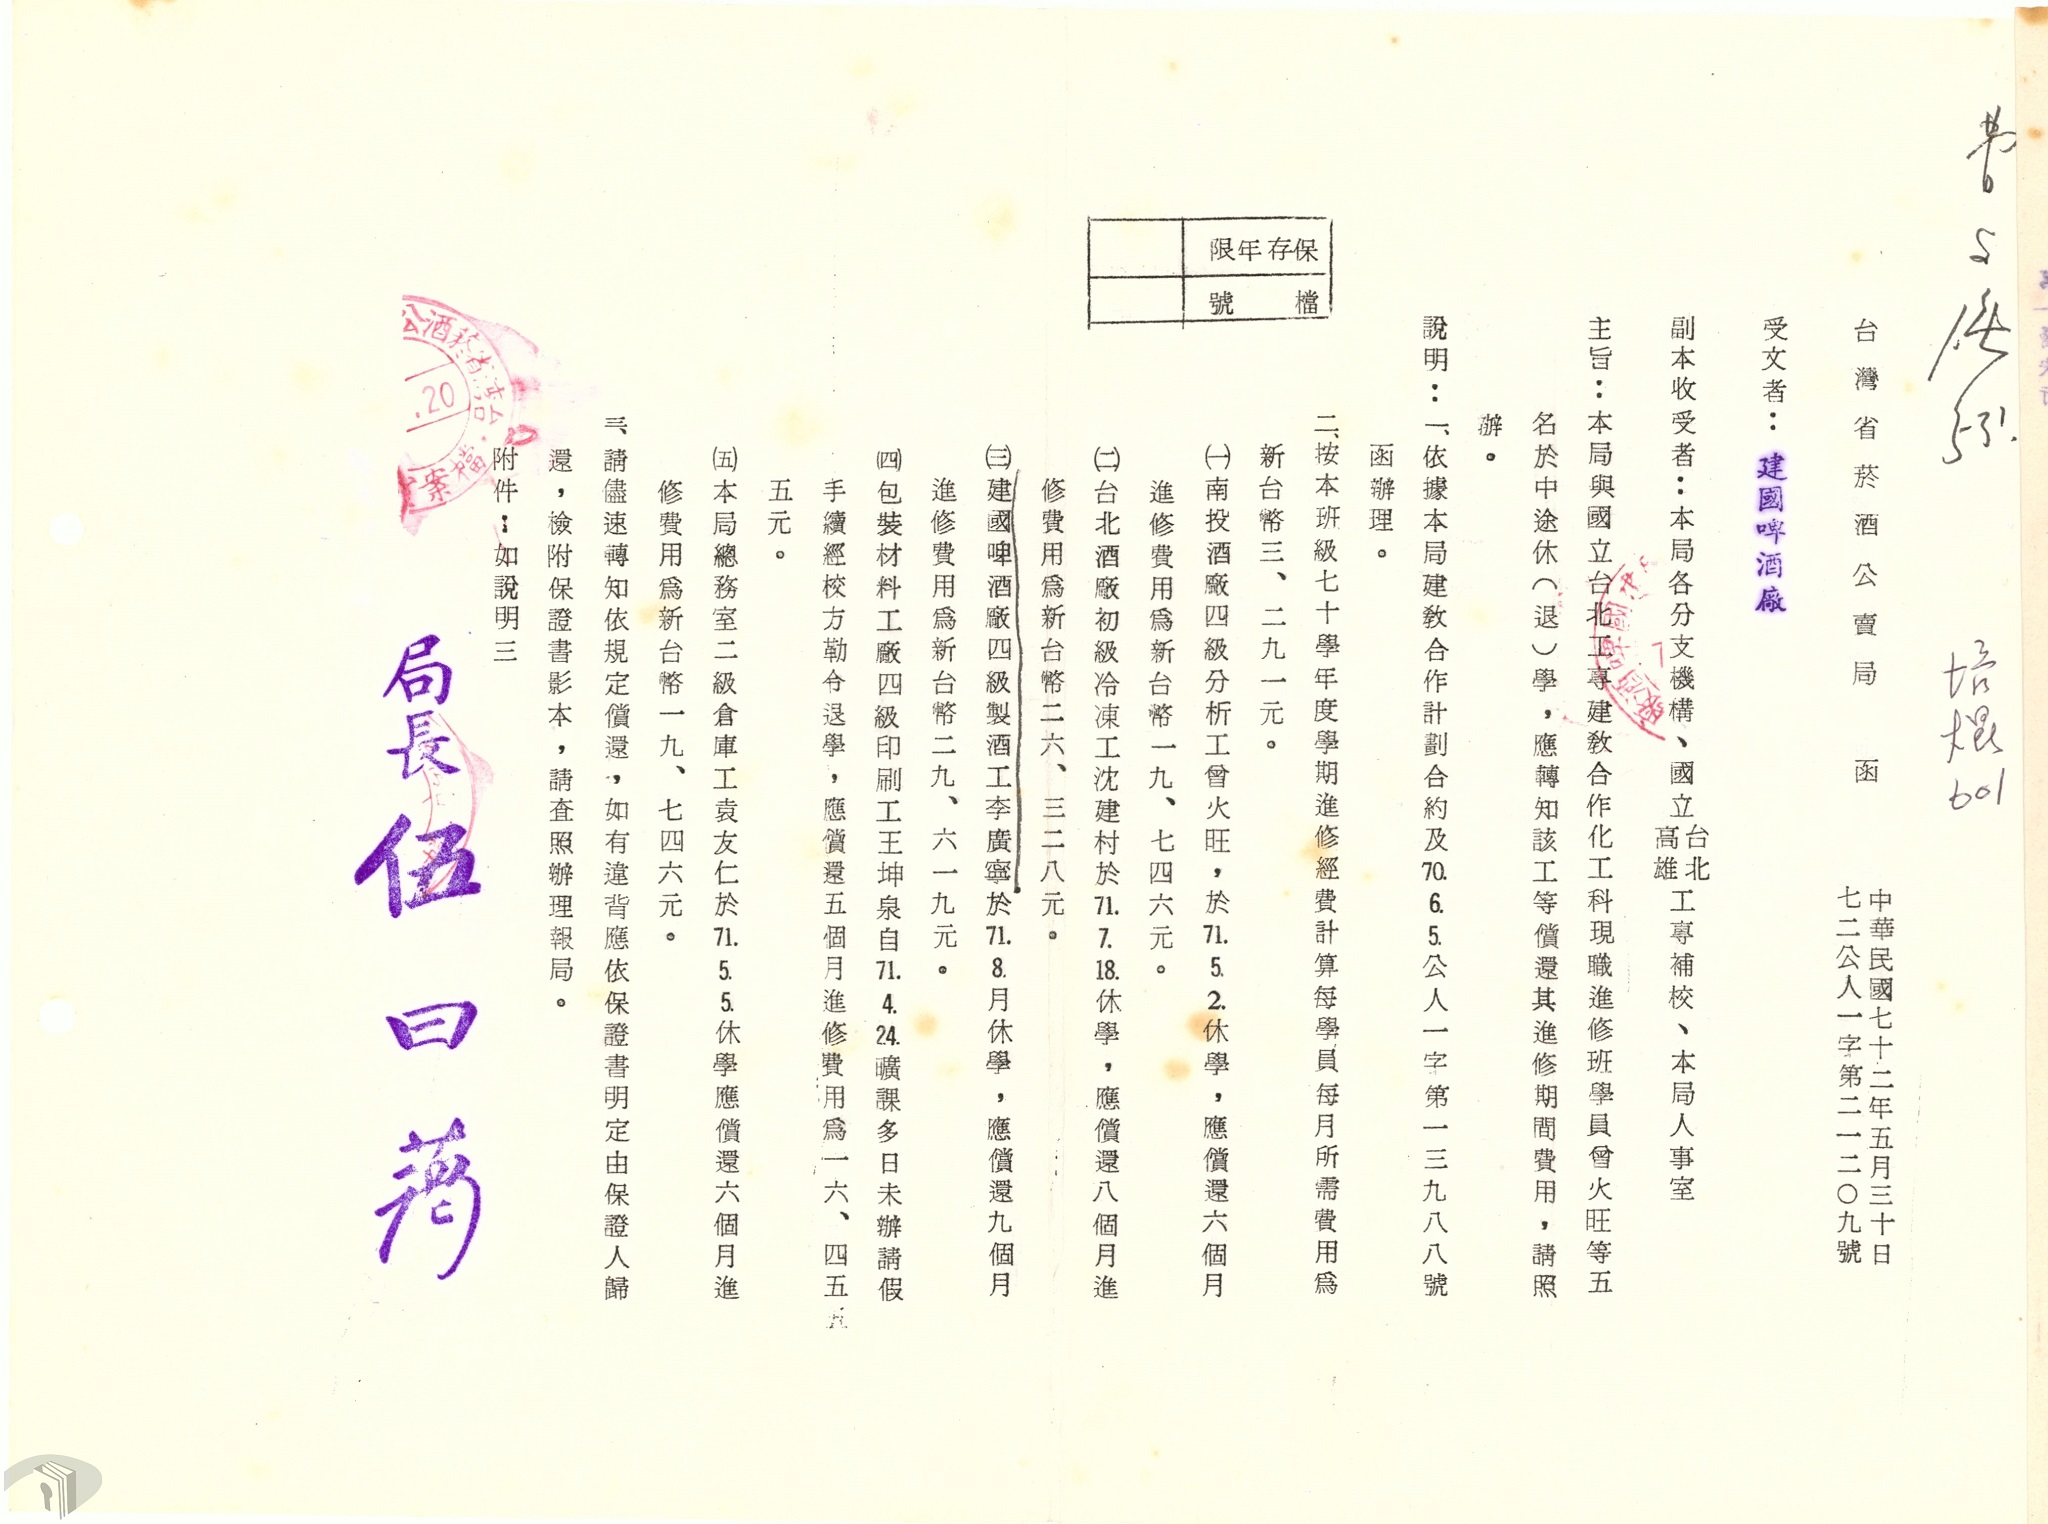 台灣省菸酒公賣局　函
中華民國七十二年五月三十日
七二公人一字第二一二〇九號
受文者：建國啤酒廠
副本收受者：本局各分支機構、國立台北高雄工專補校、本局人事室
主旨：本局與國立台北工專建教合作化工科現職進修班學員曾火旺等五
名於中途休（退）學，應轉知該工等償還其進修期間費用，請照
辦。
說明：一、依據本局建教合作計劃合約及70.6.5.公人一字第一三九八八號
函辦理。
二、按本班級七十學年度學期進修經費計算每學員每月所需費用為
新台幣三、二九一元。
㈠南投酒廠四級分析工曾火旺，於71.5.2.休學，應償還六個月
進修費用為新台幣一九、七四六元。
㈡台北酒廠初級冷凍工沈建村於71.7.18.休學，應償還八個月進
修費用為新台幣二六、三二八元。
㈢建國啤酒廠四級製酒工李廣寧於71.8.月休學，應償還九個月
進修費用為新台幣二九、六一九元。
㈣包裝材料工廠四級印刷工王坤泉自71.4.24.曠課多日未辦請假
手續經校方勒令退學，應償還五個月進修費用為一六、四五
五元。
㈤本局總務室二級倉庫工袁友仁於71.5.5.休學應償還六個月進
修費用為新台幣一九、七四六元。
三、請儘速轉知依規定償還，如有違背應依保證書明定由保證人歸
還，檢附保證書影本，請查照辦理報局。
附件：如說明三
局長
保存年限
檔號
.20
檔案
601